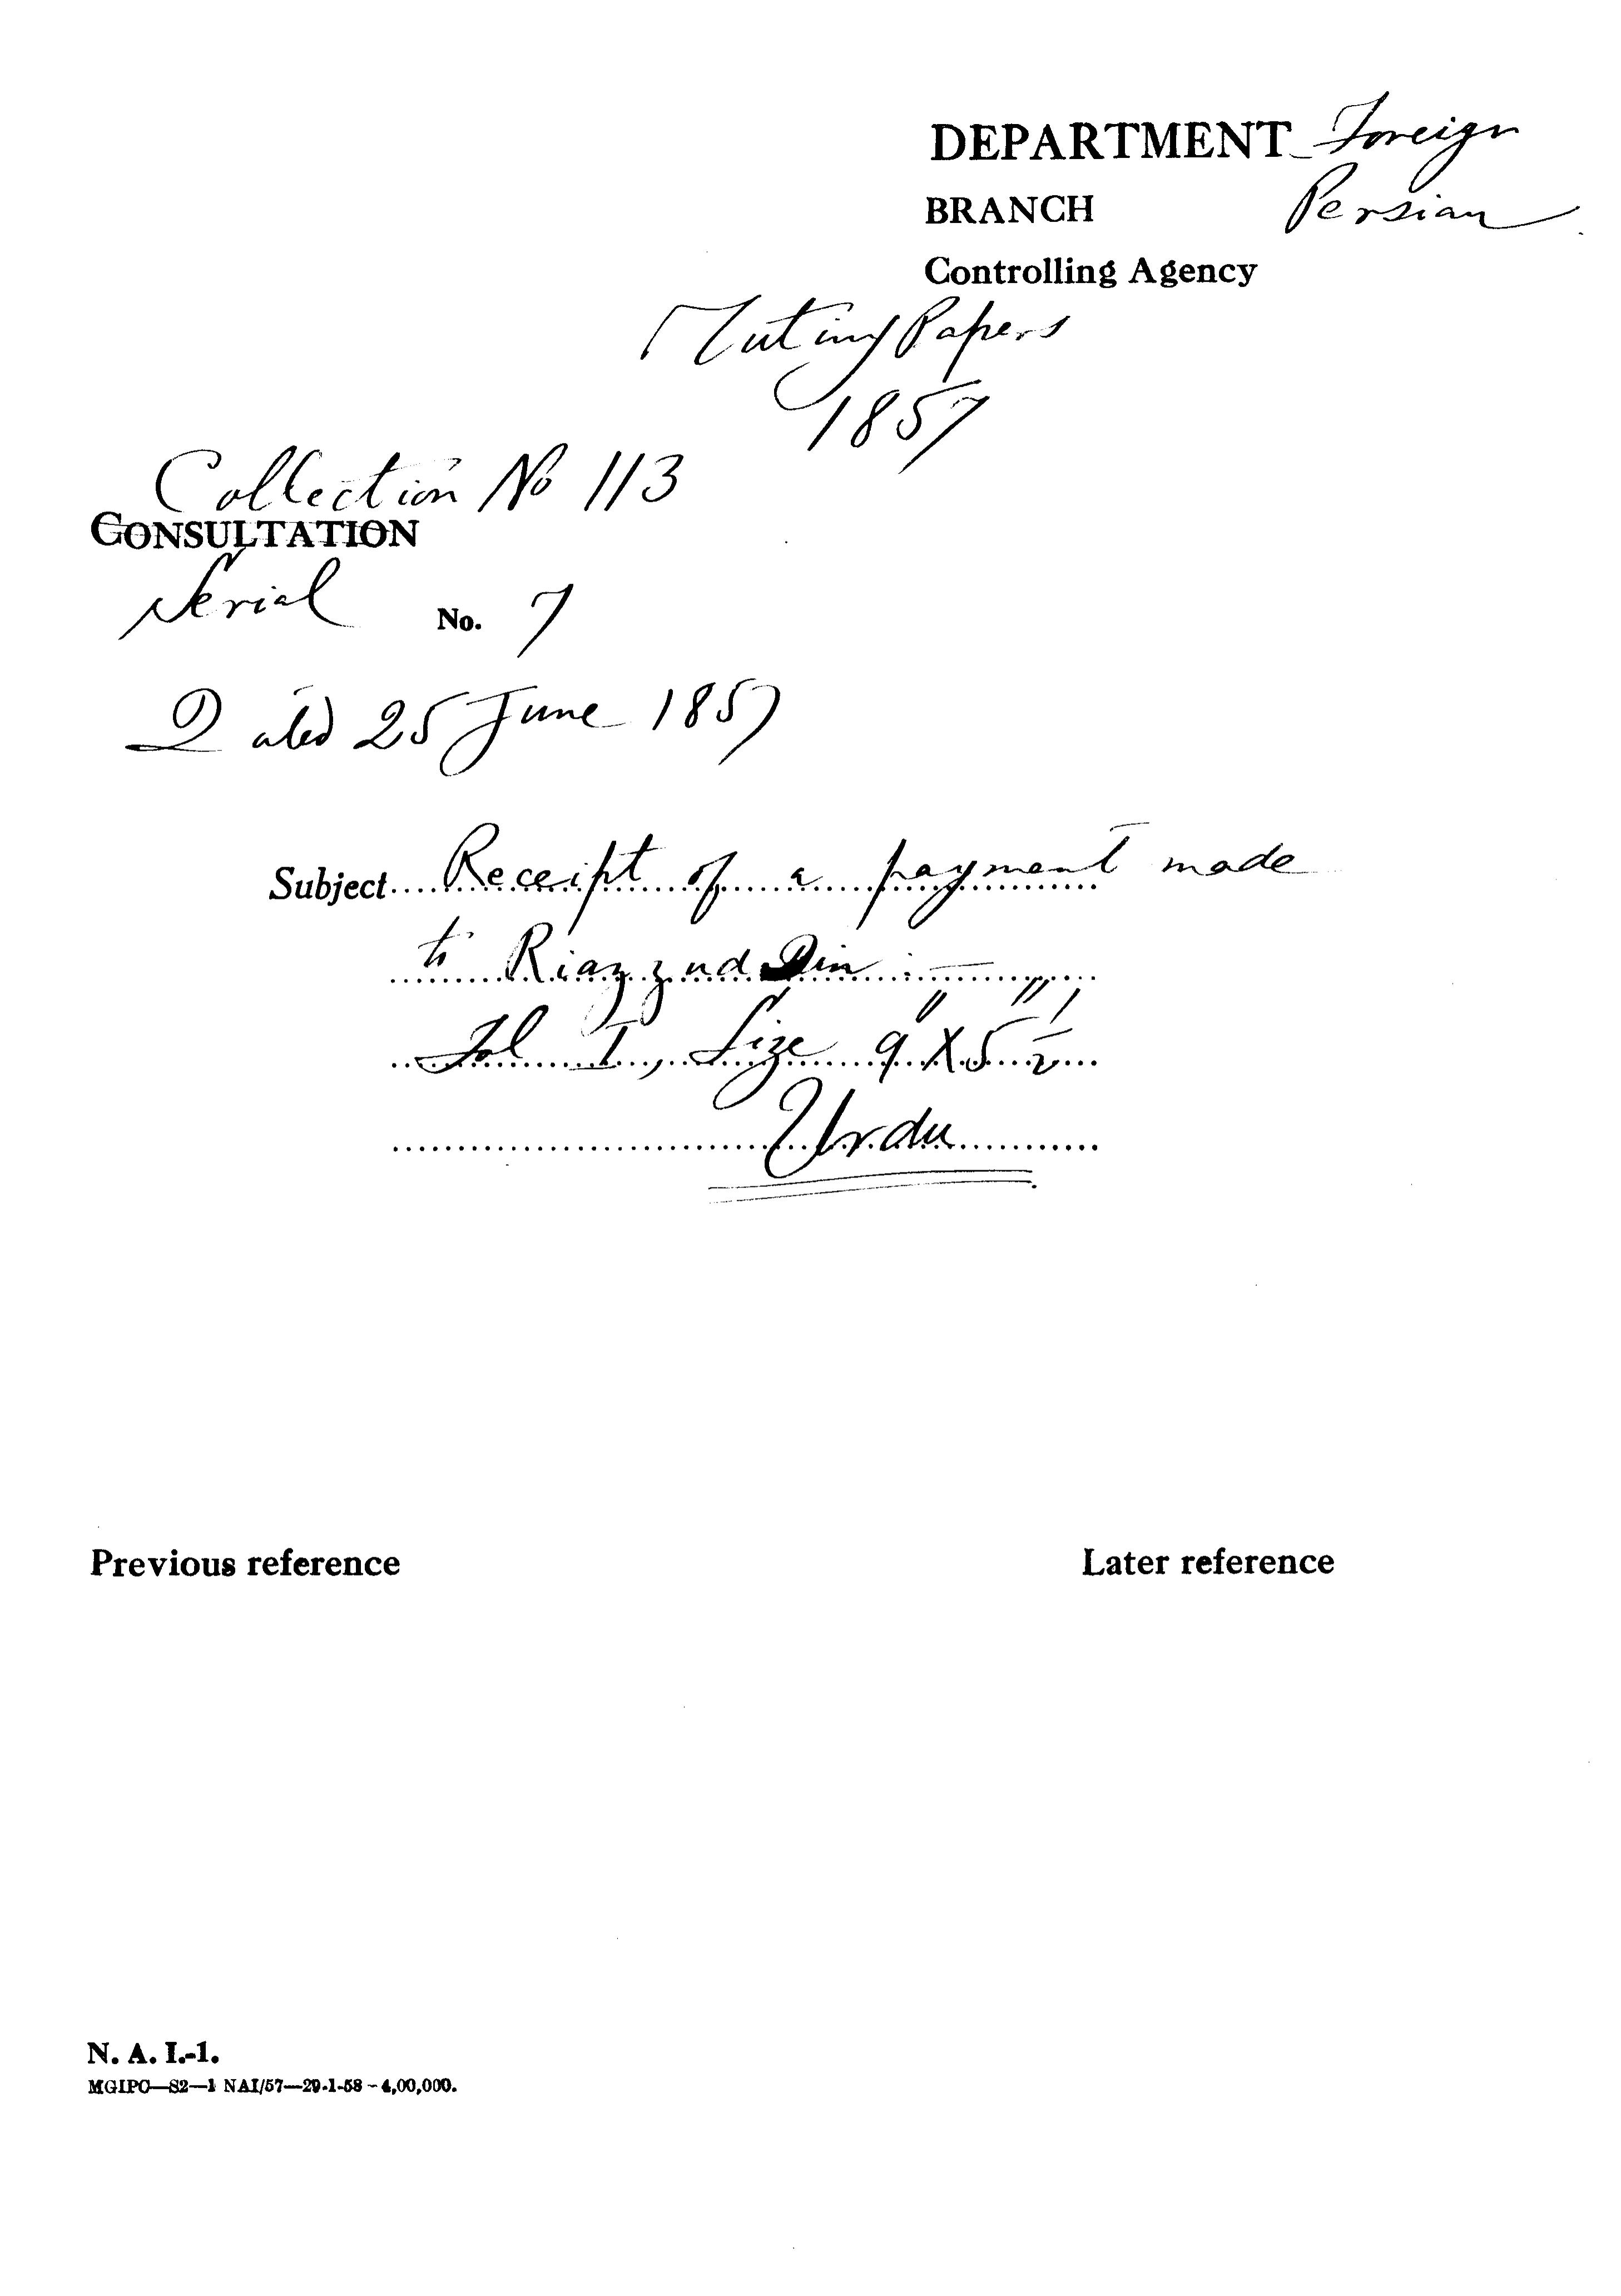 DEPARTMENT Foreign
BRANCH Persian
Controlling Agency
Mutiny Papers
1857
Collection No 113
CONSULTATION
Serial No. 7
Dated 25 June 1857
Subject Receipt of a payment made
to Riazzud Din :—
Fol I, Size 9" X 5 1/2"
Urdu
Previous reference Later reference
N. A. I.-1.
MGIPC—S2—1 NAI/57—29-1-58—4,00,000.